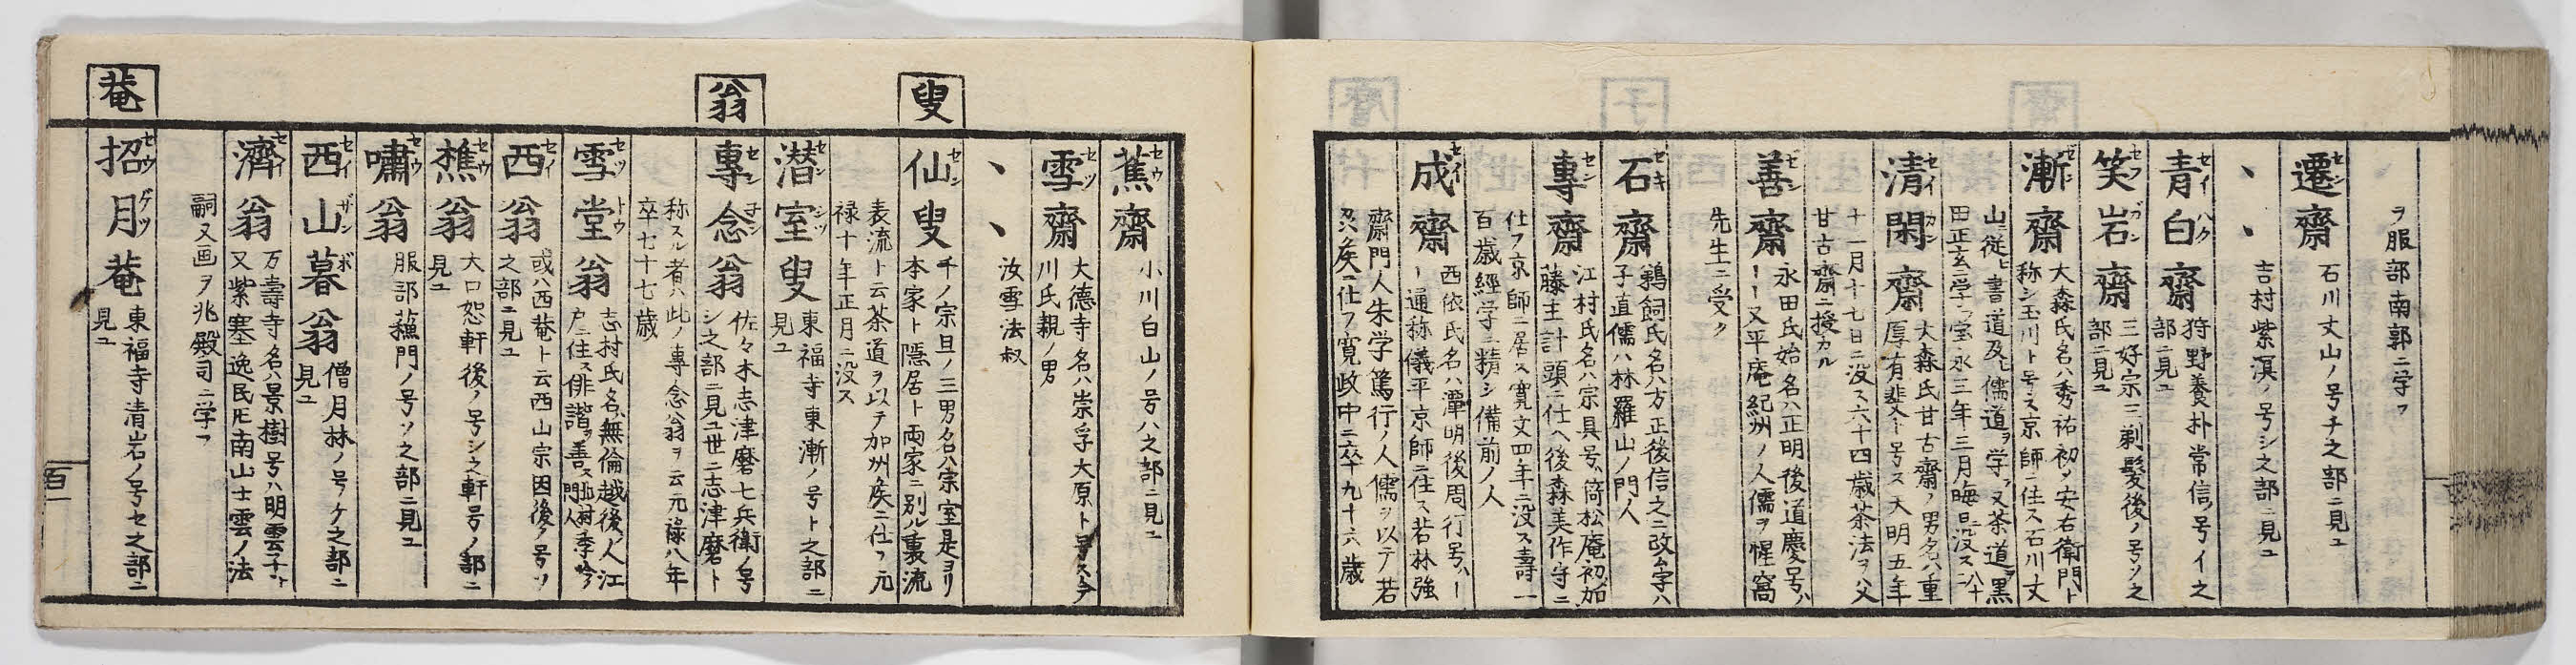 ヲ服部南郭ニ学フ
遷齋 セン 石川丈山ノ号チ之部ニ見ユ
丶丶 吉村紫溟ノ号シ之部ニ見ユ
青白齋 セイハク 狩野養朴常信号イ之
部ニ見ユ
笑岩齋 セフガン 三好宗三剃髪後ノ号ソ之
部ニ見ユ
漸齋 ゼン 大森氏名ハ秀祐初メ安右衛門ト
称シ玉川ト号ス京師ニ住ス石川丈
山ニ従ヒ書道及ヒ儒道ヲ学フ又茶道ヲ黒
田正玄ニ学フ宝永三年三月晦日ニ没ス八十
清閑齋 セイカン 大森氏甘古齋ノ男名ハ重
厚有斐ト号ス天明五年
十一月十七日ニ没ス六十四歳茶法ヲ父
甘古齋ニ授カル
善齋 ゼン 永田氏始名ハ正明後道慶号ハ
ーー又平庵紀州ノ人儒ヲ惺窩
先生ニ受ク
石齋 セキ 鵜飼氏名ハ方正後信之ニ改ム字ハ
子直儒ハ林羅山ノ門人
專齋 セン 江村氏名ハ宗具号倚松庵初加
藤主計頭ニ仕ヘ後森美作守ニ
仕フ京師ニ居ス寛文四年ニ没ス壽一
百歳経学ニ精シ備前ノ人
成齋 セイ 西依氏名ハ潭明後周行号ハー
ー通称儀平京師ニ住ス若林強
齋門人朱学篤行ノ人儒ヲ以テ若
侯ニ仕フ寛政中ニ卒年九十六歳
蕉齋 セウ 小川白山ノ号ハ之部ニ見ユ
雪齋 セツ 大徳寺名ハ崇孚大原ト号ス今
川氏親ノ男
丶丶 汝雪法叔
叟
仙叟 セン 千ノ宗旦ノ三男名ハ宗室是ヨリ
本家ト隠居ト両家ニ別ル裏流
表流ト云茶道ヲ以テ加州侯ニ仕フ元
禄十年正月ニ没ス
潜室叟 センシツ 東福寺東漸ノ号ト之部ニ
見ユ
翁
專念翁 センネン 佐々木志津磨七兵衛ノ号
シ之部ニ見ユ世ニ志津磨ト
称スル者ハ此ノ專念翁ヲ云元禄八年
卒七十七歳
雪堂翁 セツトウ 志村氏名無倫越後ノ人江
戸ニ住ス俳諧ヲ善ス北村季吟門人
西翁 セイ 或ハ西菴ト云西山宗因後ノ号ソ
之部ニ見ユ
樵翁 セウ 大口恕軒後ノ号シ之軒号ノ部ニ
見ユ
嘯翁 セウ 服部蘓門ノ号ソ之部ニ見ユ
西山暮翁 セイザンボ 僧月林ノ号ケ之部ニ
見ユ
濟翁 セイ 万壽寺名ハ景樹号ハ明雲子ト
又紫塞逸民氏南山士雲ノ法
嗣又画ヲ兆殿司ニ学フ
菴
招月菴 セウゲツ 東福寺清岩ノ号セ之部ニ
見ユ
百一